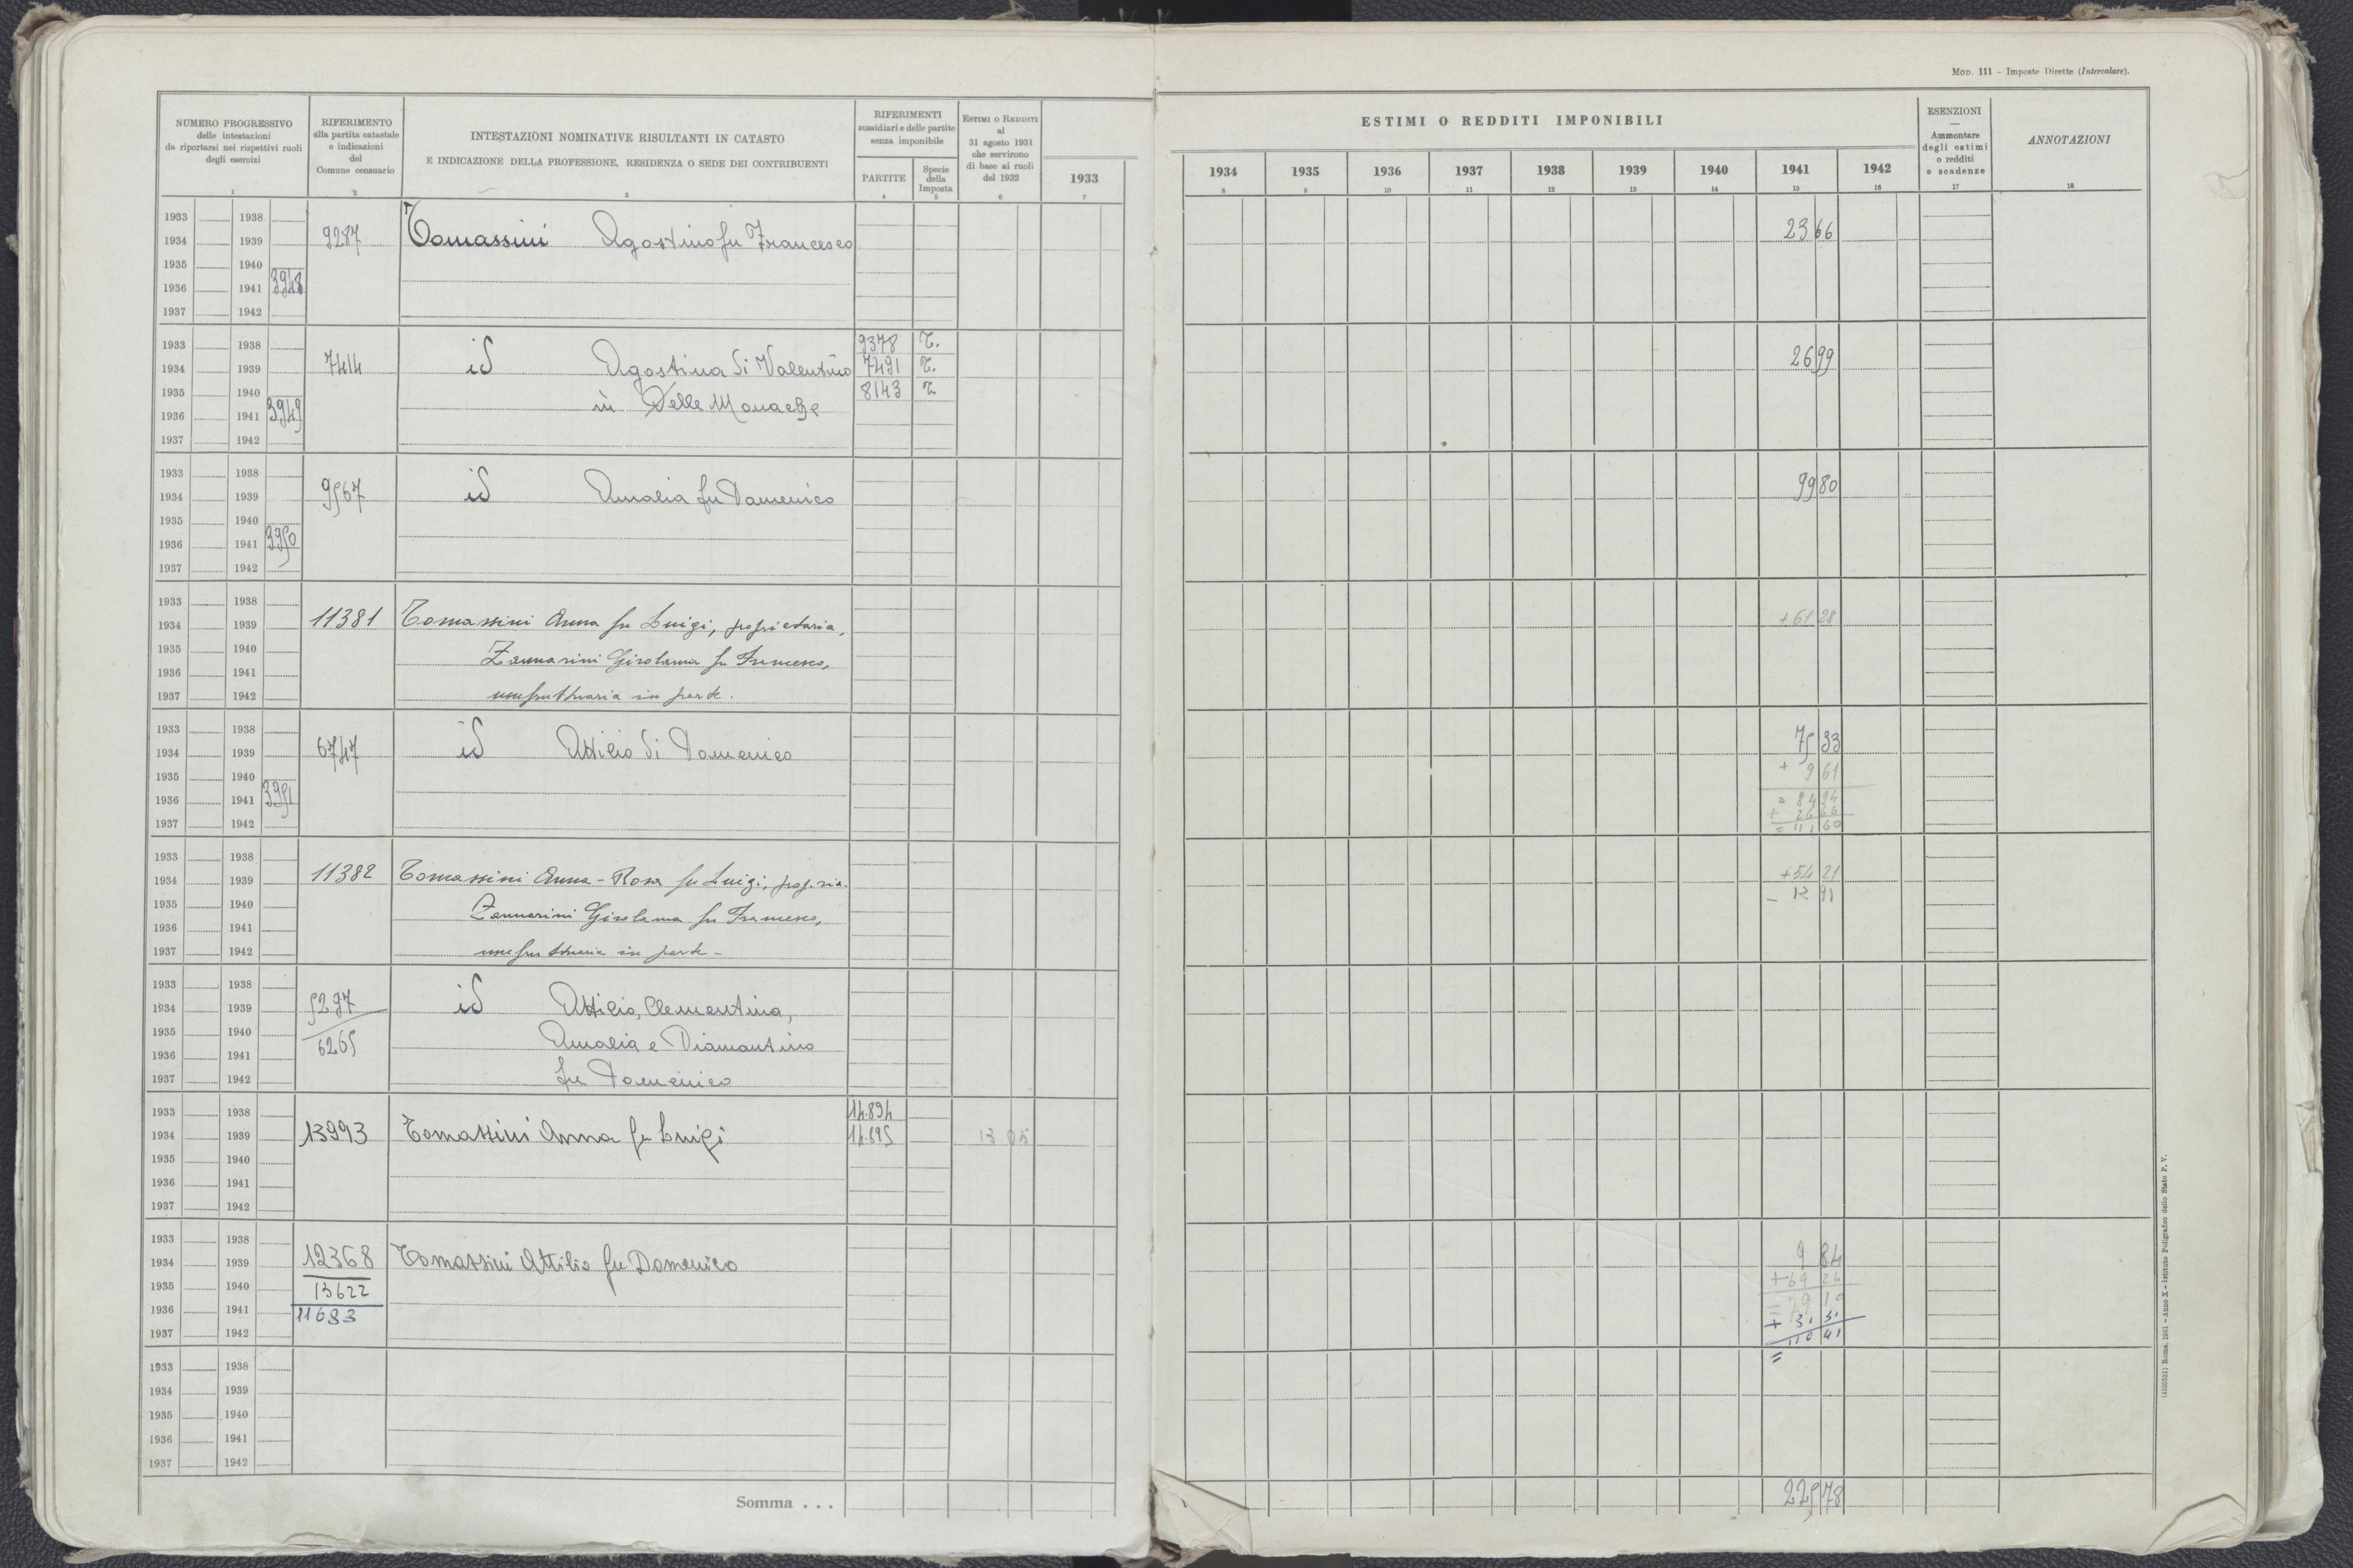 MOD. 111 – Imposte Dirette (Intercalare).
NUMERO PROGRESSIVO
delle intestazioni
da riportarsi nei rispettivi ruoli
degli esercizi
1
RIFERIMENTO
alla partita catastale
e indicazioni
del
Comune censuario
2
INTESTAZIONI NOMINATIVE RISULTANTI IN CATASTO
E INDICAZIONE DELLA PROFESSIONE, RESIDENZA O SEDE DEI CONTRIBUENTI
3
RIFERIMENTI
sussidiari e delle partite
senza imponibile
PARTITE
4
Specie
della
Imposta
5
ESTIMI O REDDITI
al
31 agosto 1931
che servirono
di base ai ruoli
del 1932
6
1933
7
ESTIMI O REDDITI IMPONIBILI
1934 1935 1936 1937 1938 1939 1940 1941 1942
8 9 10 11 12 13 14 15 16
ESENZIONI
—
Ammontare
degli estimi
o redditi
e scadenze
17
ANNOTAZIONI
18
1933 1938
1934 1939 9287 Tomassini Agostino fu Francesco 2366
1935 1940
1936 1941 3948
1937 1942
1933 1938 9378 T.
1934 1939 7414 id Agostina di Valentino 7491 T. 2699
1935 1940 in Delle Monache 8143 T
1936 1941 3949
1937 1942
1933 1938
1934 1939 9567 id Amalia fu Domenico 9980
1935 1940
1936 1941 3950
1937 1942
1933 1938
1934 1939 11381 Tomassini Anna fu Luigi, proprietaria, +61 28
1935 1940 Zannarini Girolama fu Francesco,
1936 1941
1937 1942 usufruttuaria in parte.
1933 1938
1934 1939 6747 id Attilio di Domenico 75 33
1935 1940 + 9 61
1936 1941 3951 = 84 94
+ 26 66
1937 1942 = 111 60
1933 1938
1934 1939 11382 Tomassini Anna-Rosa fu Luigi, propr.ria +54 21
1935 1940 Zannarini Girolama fu Francesco, – 12 91
1936 1941
1937 1942 usufruttuaria in parte –
1933 1938
1934 1939 5297 id Attilio, Clementina,
1935 1940 6265 Amalia e Diamantino
1936 1941
1937 1942 fu Domenico
1933 1938 14.894
1934 1939 13993 Tomassini Anna fu Luigi 14.895 13 05
1935 1940
1936 1941
1937 1942
1933 1938
1934 1939 12368 Tomassini Attilio fu Domenico 9 84
1935 1940 13622 +69 26
1936 1941 11683 = 79 10
+ 31 31
1937 1942 = 110 41
1933 1938
1934 1939
1935 1940
1936 1941
1937 1942
Somma . . . 225 78
(4100581) Roma, 1931 – Anno X – Istituto Poligrafico dello Stato P. V.